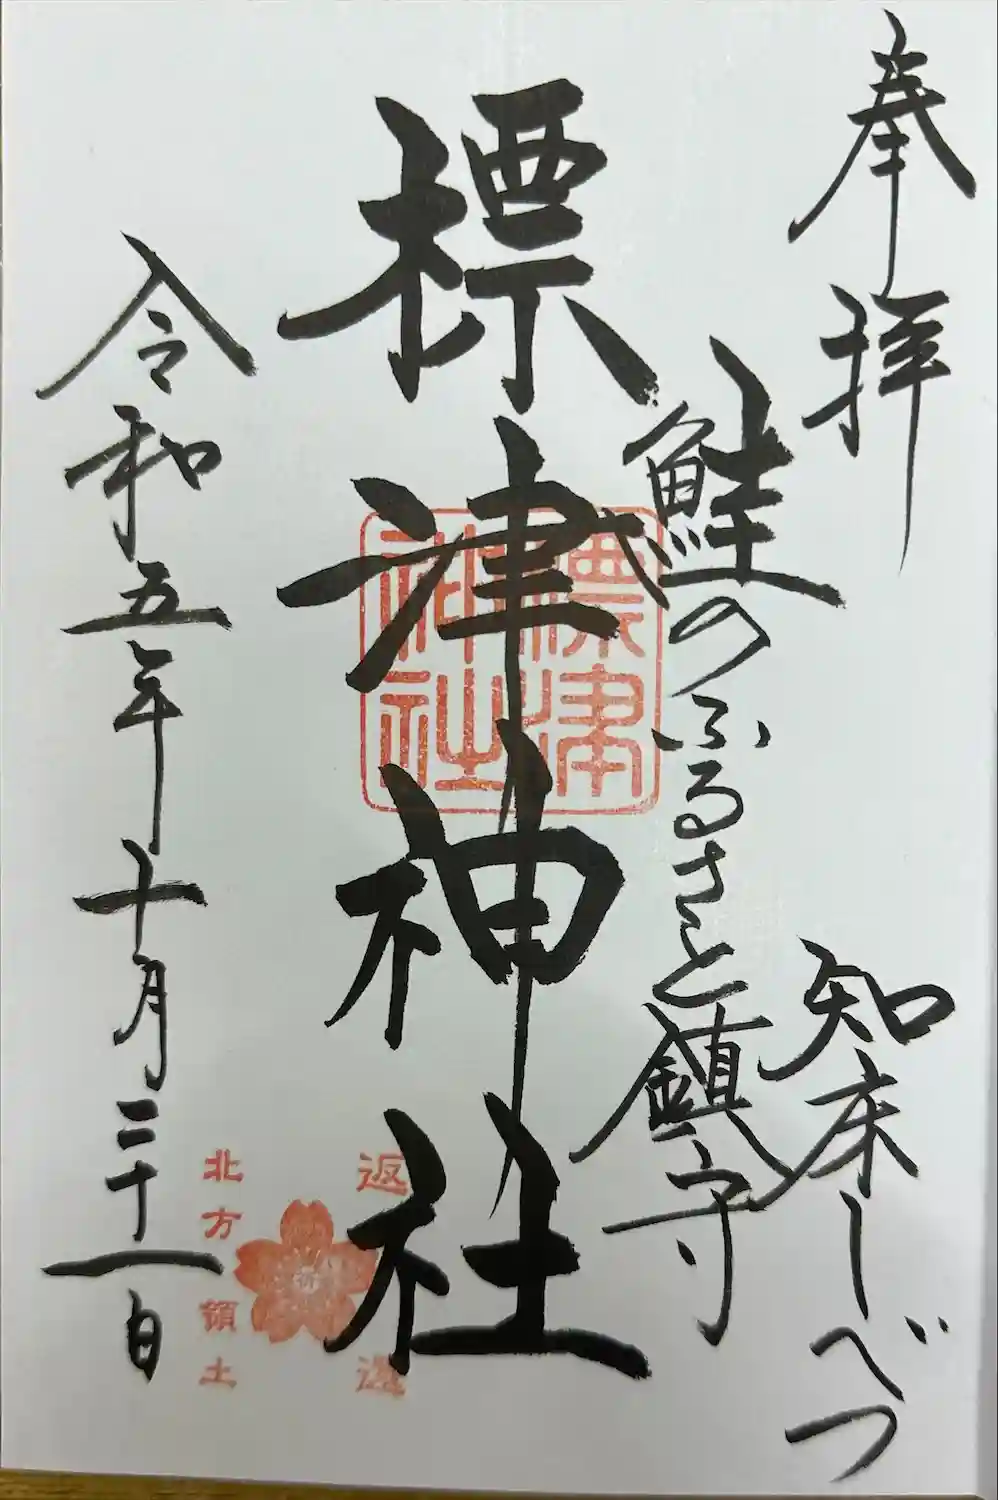 奉拝
知床しべつ
鮭のふるさと鎮守
標津神社
標津
神社
返還
北方領土
祈
令和五年十月三十一日